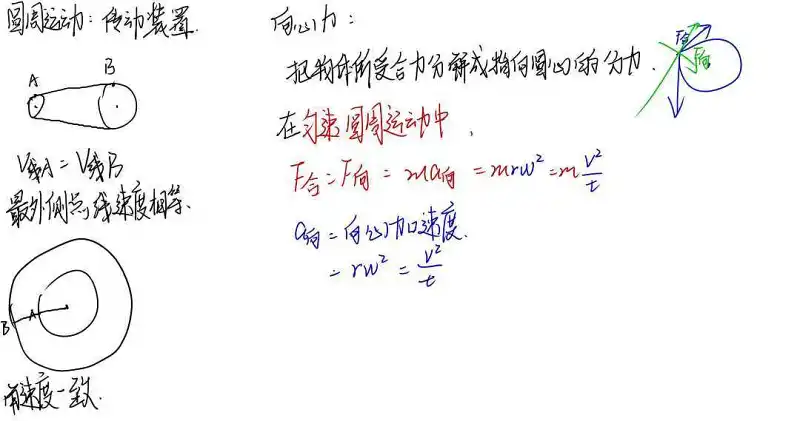 圆周运动：传动装置.
A
B
V线A = V线B
最外侧点，线速度相等.
B
A
角速度一致.
向心力：
把物体所受合力分解成指向圆心的分力.
F合
F向
在匀速圆周运动中，
F合 = F向 = ma向 = mrw² = m v²/t
a向 = 向心加速度.
= rw² = v²/t